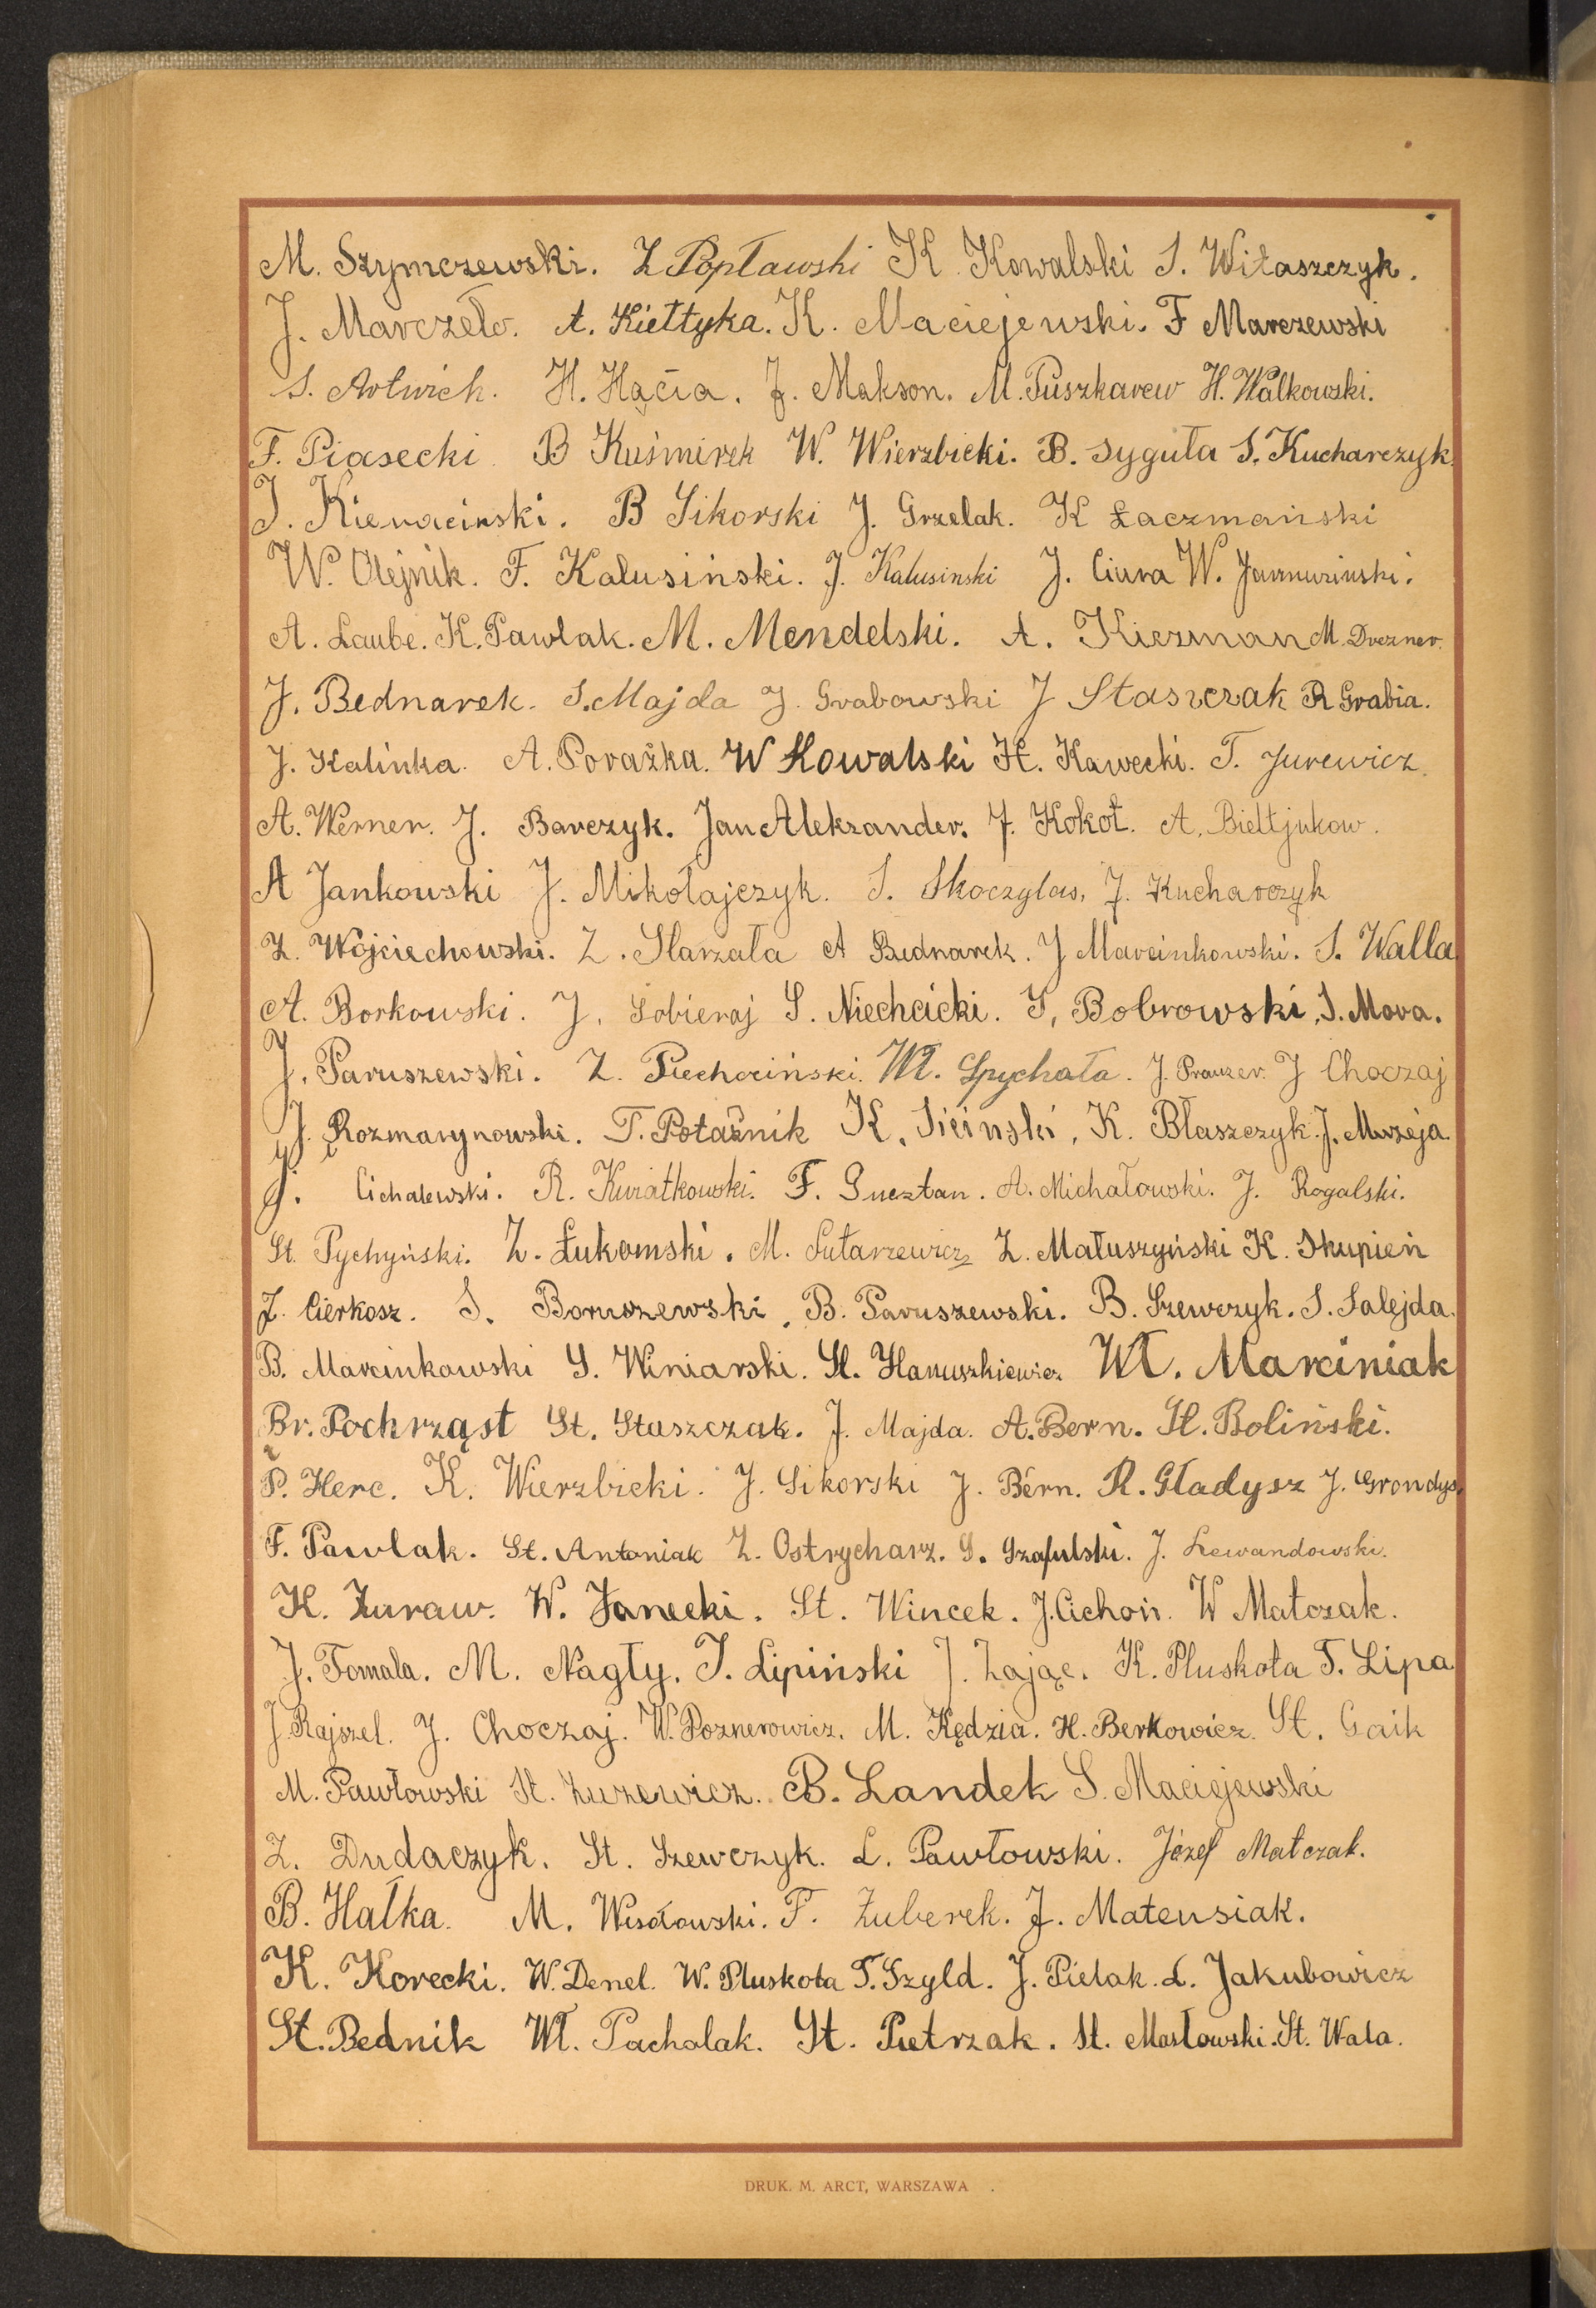 M. Szymczewski. Z Popławski K. Kowalski S. Witaszczyk.
J. Marczeło. A. Kiełtyka. K. Maciejewski. F Marczewski
S. Artwich. H. Hącia. J. Makson. M. Puszkarew H. Walkowski.
F. Piasecki. B Kuśmirek W. Wierzbicki. B. Syguła S. Kucharczyk.
J. Kieraciński. B Sikorski J. Grzelak. K Łaczmański
W. Olejnik. F. Kalusiński. J. Kalusinski J. Ciura W.
A. Laube. K. Pawlak. M. Mendelski. A. Kiezman M. Drezner.
J. Bednarek. S. Majda J. Grabowski J Staszczak R Grabia.
J. Kalinka. A. Porażka. W Kowalski H. Kawecki. T. Jurewicz.
A. Werner. J. Barczyk. Jan Alekzander. J. Kokot. A. Biełtjukow.
A Jankowski J. Mikołajczyk. S. Skoczylas, J. Kucharczyk
Z. Wojciechowski. Z. Starzała A Bednarek. J Marcinkowski. S. Walla
A. Borkowski. J. Sobieraj S. Niechcicki. J, Bobrowski, S. Mora.
J. Paruszewski. Z. Piechociński. Wł. Spychała. J. Prauzer. J Choczaj
J. Rozmarynowski. T. Potaźnik K. Siciński, K. Błaszczyk. J. Muzeja.
J. Cichalewski. R. Kwiatkowski. F. A. Michałowski. J. Rogalski.
St. Pychyński. Z. Łukomski. M. Sutarzewicz Z. Matuszyński K. Skupień
J. Cierkosz. S. Boruszewski. B. Paruszewski. B. Szewczyk. S. Salejda.
B. Marcinkowski S. Winiarski. St. Hanuszkiewicz Wł. Marciniak
Br. Pochrząst St. Staszczak. J. Majda. A. Bern. St. Boliński.
P. Herc. K. Wierzbicki. J. Sikorski J. Bern. R. Gładysz J. Grondys.
F. Pawlak. St. Antoniak Z. Ostrycharz. S. J. Lewandowski.
K. Żuraw. W. Janecki. St. Wincek. J. Cichoń. W Matczak.
J. Tomala. M. Nagły. J. Lipiński J. Zając. K. Pluskota T. Lipa
J. Rajszel. J. Choczaj. W. Poznerowicz. M. Kędzia. H. Berkowicz. St. Gaik
M. Pawłowski St. Żurewicz. B. Landek S. Maciejewski
Z. Dudaczyk. St. Szewczyk. L. Pawłowski. Józef Matczak.
B. Hałka. M. Wesołowski. F. Zuberek. J. Mateusiak.
K. Korecki. W. Denel. W. Pluskota T. Szyld. J. Pielak. L. Jakubowicz
St. Bednik Wł. Pacholak. St. Pietrzak. St. Masłowski. St. Wala.
DRUK. M. ARCT, WARSZAWA